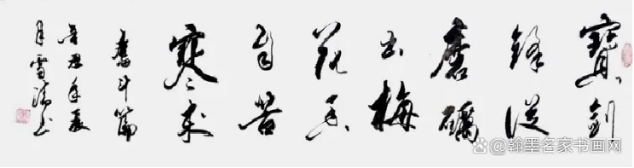 寶劍
鋒從
磨礪
出梅
花香
自苦
寒來
奮斗篇
辛丑年夏
月雪书
@翰墨名家书画网